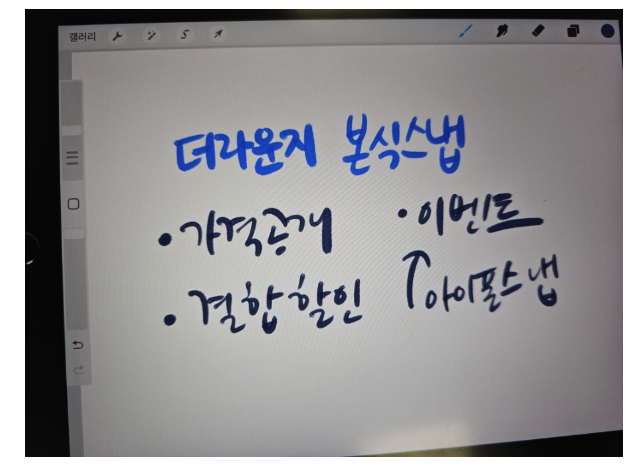 갤러리
더라운지 본식스냅
• 가격공개 • 이벤트
• 결합할인 ↑아이폰스냅